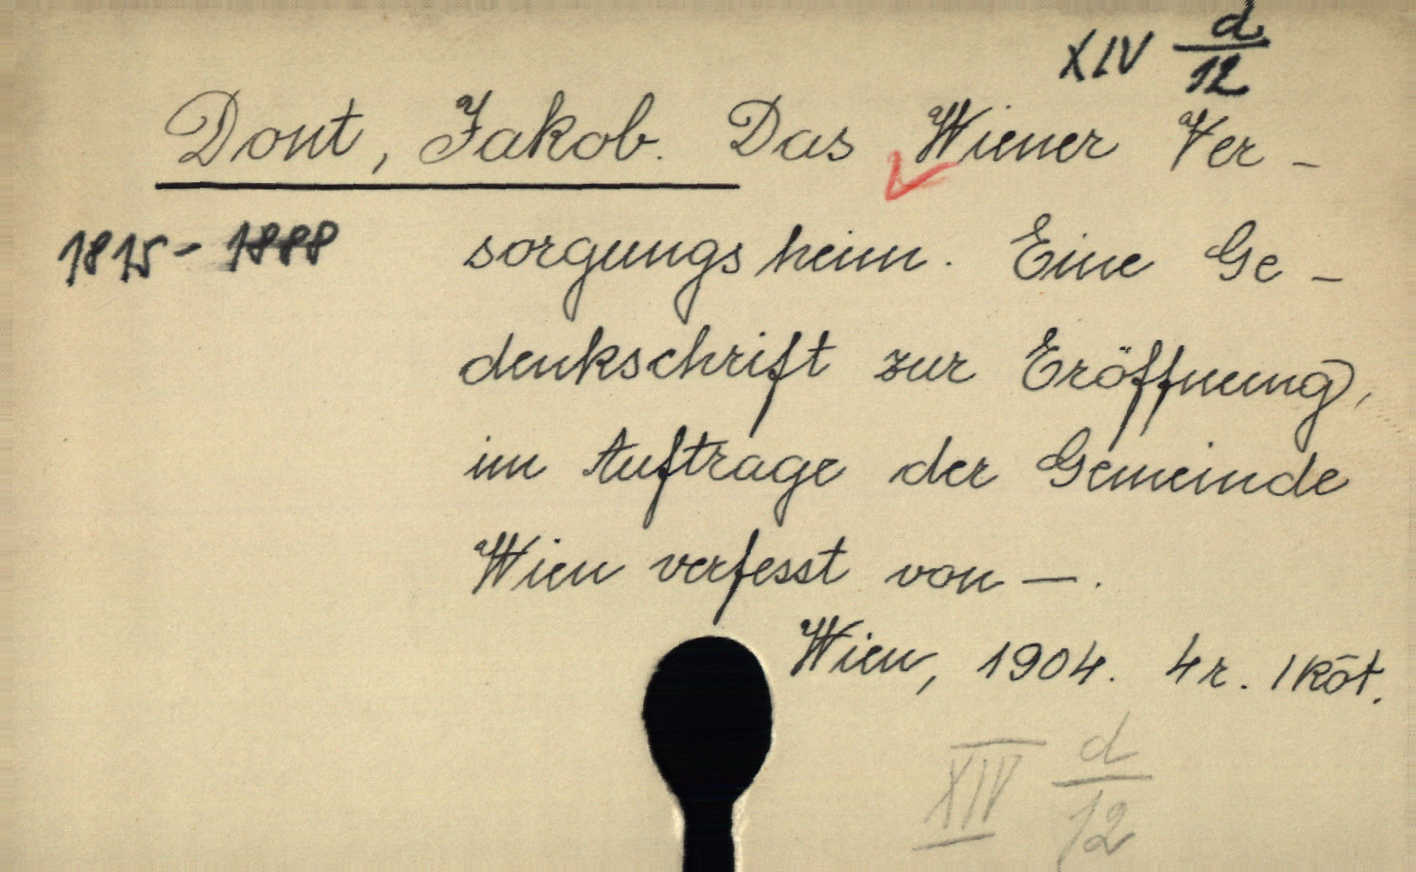 XIV d/12
Dont, Jakob. Das Wiener Ver-
1815-1888 sorgungsheim. Eine Ge-
denkschrift zur Eröffnung,
im Auftrage der Gemeinde
Wien verfesst von —.
Wien, 1904. 4r. 1 köt.
XIV d/12